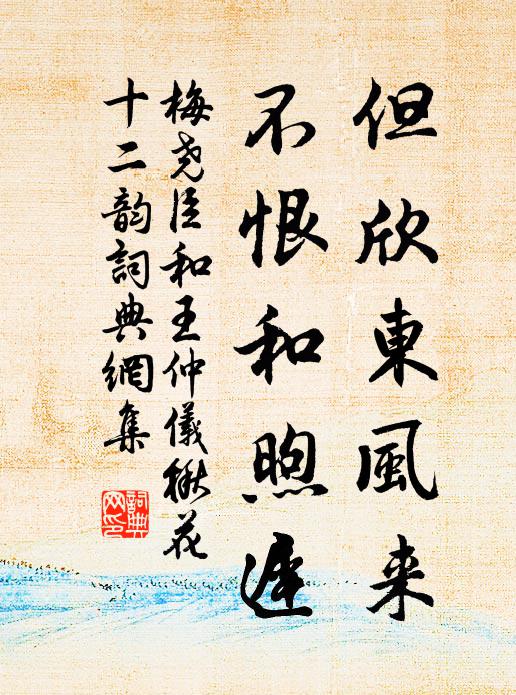 但欣東風来
不恨和煦遲
梅尧臣和王仲儀楸花
十二韵詞典網集
詞典
网印